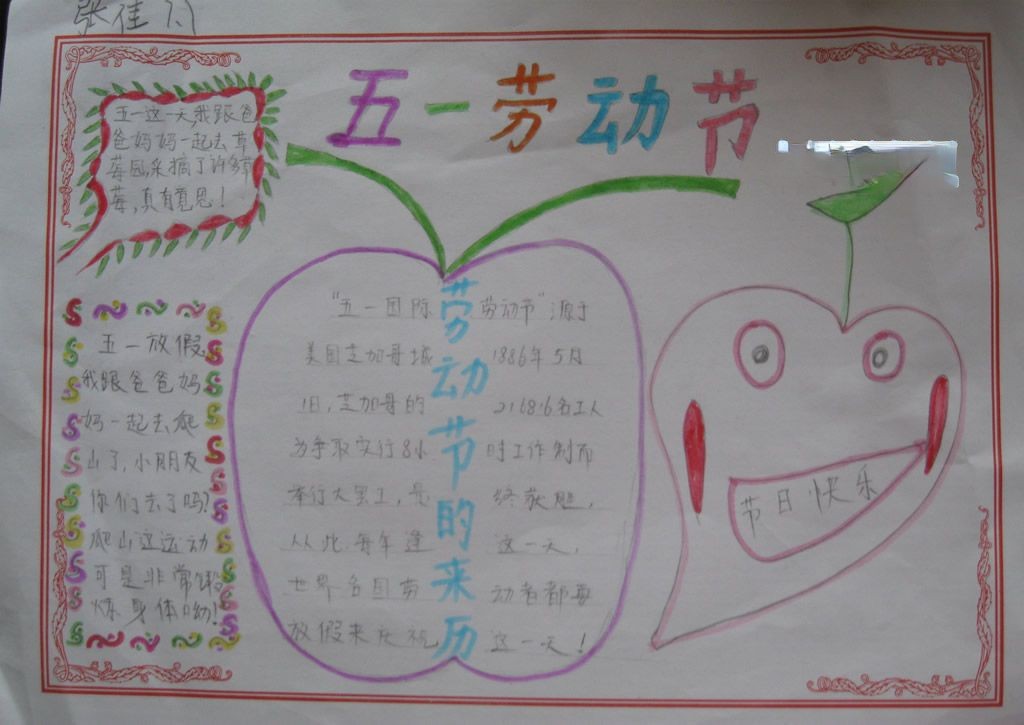 张佳
五一劳动节
五一这一天,我跟爸
爸妈妈一起去草
莓园采摘了许多草
莓,真有意思!
五一放假
我跟爸爸妈
妈一起去爬
山了,小朋友
你们去了吗?
爬山这运动
可是非常锻
炼身体呦!
劳动节的来历
"五一国际劳动节"源于
美国芝加哥城 1886年5月
1日,芝加哥的 21.68.6名工人
为争取实行8小时工作制而
举行大罢工,最终获胜,
从此每年逢这一天,
世界各国劳动者都要
放假来庆祝这一天!
节日快乐